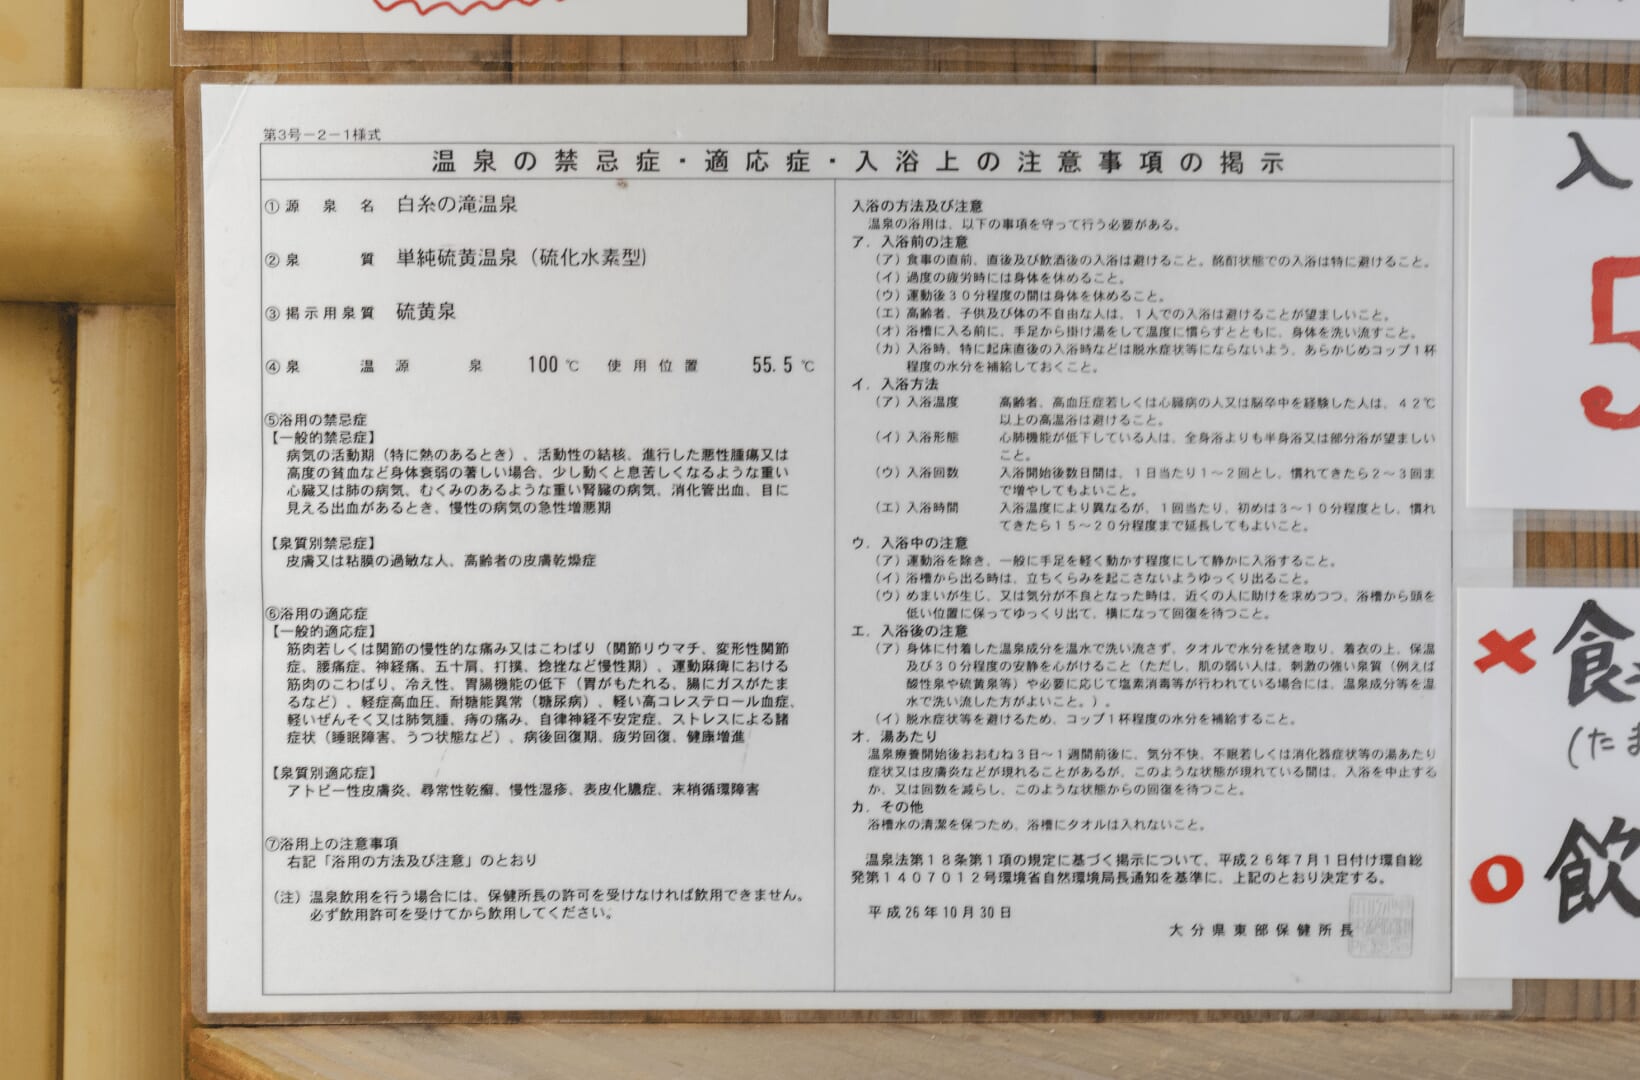 第3号-2-1様式
温泉の禁忌症・適応症・入浴上の注意事項の掲示
①源泉名 白糸の滝温泉
②泉質 単純硫黄温泉(硫化水素型)
③掲示用泉質 硫黄泉
④泉温 源泉 100℃ 使用位置 55.5℃
⑤浴用の禁忌症
【一般的禁忌症】
病気の活動期(特に熱のあるとき)、活動性の結核、進行した悪性腫瘍又は
高度の貧血など身体衰弱の著しい場合、少し動くと息苦しくなるような重い
心臓又は肺の病気、むくみのあるような重い腎臓の病気、消化管出血、目に
見える出血があるとき、慢性の病気の急性増悪期
【泉質別禁忌症】
皮膚又は粘膜の過敏な人、高齢者の皮膚乾燥症
⑥浴用の適応症
【一般的適応症】
筋肉若しくは関節の慢性的な痛み又はこわばり(関節リウマチ、変形性関節
症、腰痛症、神経痛、五十肩、打撲、捻挫など慢性期)、運動麻痺における
筋肉のこわばり、冷え性、胃腸機能の低下(胃がもたれる、腸にガスがたま
るなど)、軽症高血圧、耐糖能異常(糖尿病)、軽い高コレステロール血症、
軽いぜんそく又は肺気腫、痔の痛み、自律神経不安定症、ストレスによる諸
症状(睡眠障害、うつ状態など)、病後回復期、疲労回復、健康増進
【泉質別適応症】
アトピー性皮膚炎、尋常性乾癬、慢性湿疹、表皮化膿症、末梢循環障害
⑦浴用上の注意事項
右記「浴用の方法及び注意」のとおり
(注)温泉飲用を行う場合には、保健所長の許可を受けなければ飲用できません。
必ず飲用許可を受けてから飲用してください。
入浴の方法及び注意
温泉の浴用は、以下の事項を守って行う必要がある。
ア.入浴前の注意
(ア)食事の直前、直後及び飲酒後の入浴は避けること。酩酊状態での入浴は特に避けること。
(イ)過度の疲労時には身体を休めること。
(ウ)運動後30分程度の間は身体を休めること。
(エ)高齢者、子供及び体の不自由な人は、1人での入浴は避けることが望ましいこと。
(オ)浴槽に入る前に、手足から掛け湯をして温度に慣らすとともに、身体を洗い流すこと。
(カ)入浴時、特に起床直後の入浴時などは脱水症状等にならないよう、あらかじめコップ1杯
程度の水分を補給しておくこと。
イ.入浴方法
(ア)入浴温度 高齢者、高血圧症若しくは心臓病の人又は脳卒中を経験した人は、42℃
以上の高温浴は避けること。
(イ)入浴形態 心肺機能が低下している人は、全身浴よりも半身浴又は部分浴が望ましい
こと。
(ウ)入浴回数 入浴開始後数日間は、1日当たり1~2回とし、慣れてきたら2~3回ま
で増やしてもよいこと。
(エ)入浴時間 入浴温度により異なるが、1回当たり、初めは3~10分程度とし、慣れ
てきたら15~20分程度まで延長してもよいこと。
ウ.入浴中の注意
(ア)運動浴を除き、一般に手足を軽く動かす程度にして静かに入浴すること。
(イ)浴槽から出る時は、立ちくらみを起こさないようゆっくり出ること。
(ウ)めまいが生じ、又は気分が不良となった時は、近くの人に助けを求めつつ、浴槽から頭を
低い位置に保ってゆっくり出て、横になって回復を待つこと。
エ.入浴後の注意
(ア)身体に付着した温泉成分を温水で洗い流さず、タオルで水分を拭き取り、着衣の上、保温
及び30分程度の安静を心がけること(ただし、肌の弱い人は、刺激の強い泉質(例えば
酸性泉や硫黄泉等)や必要に応じて塩素消毒等が行われている場合には、温泉成分等を温
水で洗い流した方がよいこと。)。
(イ)脱水症状等を避けるため、コップ1杯程度の水分を補給すること。
オ.湯あたり
温泉療養開始後おおむね3日~1週間前後に、気分不快、不眠若しくは消化器症状等の湯あたり
症状又は皮膚炎などが現れることがあるが、このような状態が現れている間は、入浴を中止する
か、又は回数を減らし、このような状態からの回復を待つこと。
カ.その他
浴槽水の清潔を保つため、浴槽にタオルは入れないこと。
温泉法第18条第1項の規定に基づく掲示について、平成26年7月1日付け環自総
発第1407012号環境省自然環境局長通知を基準に、上記のとおり決定する。
平成26年10月30日
大分県東部保健所長
入
5
×食
(たま
○飲